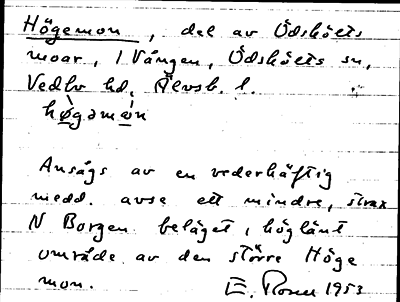 Högemon, del av Ödskölts
moar, i Vången, Ödskölts sn,
Vedbo hd, Älvsb. l.
høgəmòn
Ansågs av en vederhäftig
medd. avse ett mindre, strax
N Borgen beläget, höglänt
område av den större Höge
mon. E. 1953